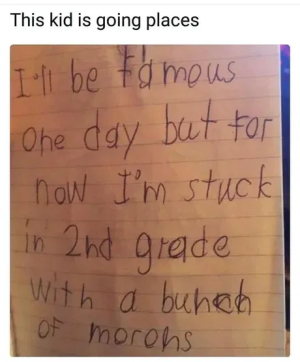 This kid is going places
I'll be famous
one day but for
now I'm stuck
in 2nd grade
with a bunch
of morons